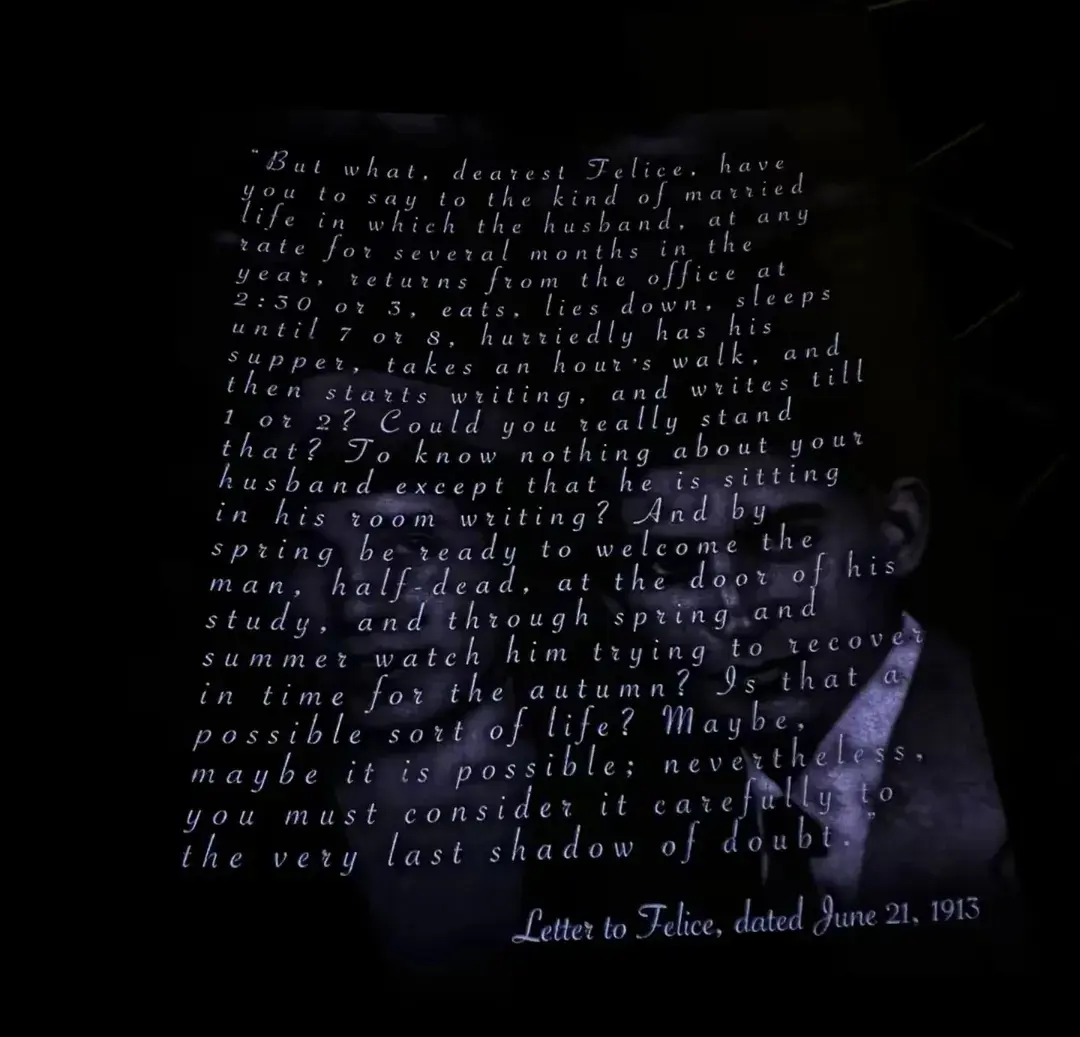 "But what, dearest Felice, have
you to say to the kind of married
life in which the husband, at any
rate for several months in the
year, returns from the office at
2:30 or 3, eats, lies down, sleeps
until 7 or 8, hurriedly has his
supper, takes an hour's walk, and
then starts writing, and writes till
1 or 2? Could you really stand
that? To know nothing about your
husband except that he is sitting
in his room writing? And by
spring be ready to welcome the
man, half-dead, at the door of his
study, and through spring and
summer watch him trying to recover
in time for the autumn? Is that a
possible sort of life? Maybe,
maybe it is possible; nevertheless,
you must consider it carefully to
the very last shadow of doubt."
Letter to Felice, dated June 21, 1913